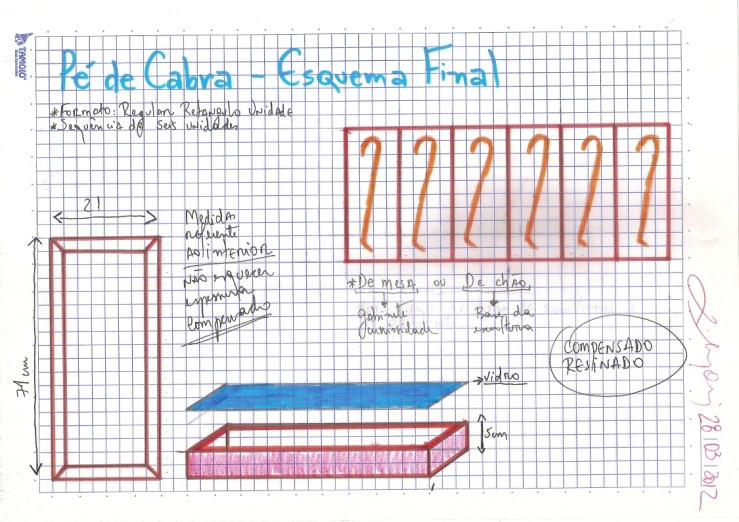 TAMOIO
Pé de Cabra - Esquema Final
*Formato: Regular Retangulo Unidade
*Sequência de Seis unidades
21
Medidas
referente
AO interior
NÃO esquecer
espessura
compensado
71 cm
*De mesa ou De chão
gabinete
curiosidade
Base da
escultura
COMPENSADO
RESINADO
vidro
5cm
28/03/2012